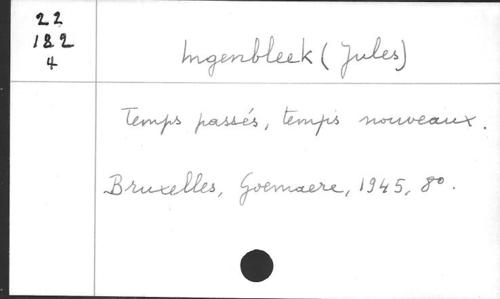 22
182
4
Ingenbleek (Jules)
Temps passés, temps nouveaux.
Bruxelles, Goemaere, 1945, 8º.